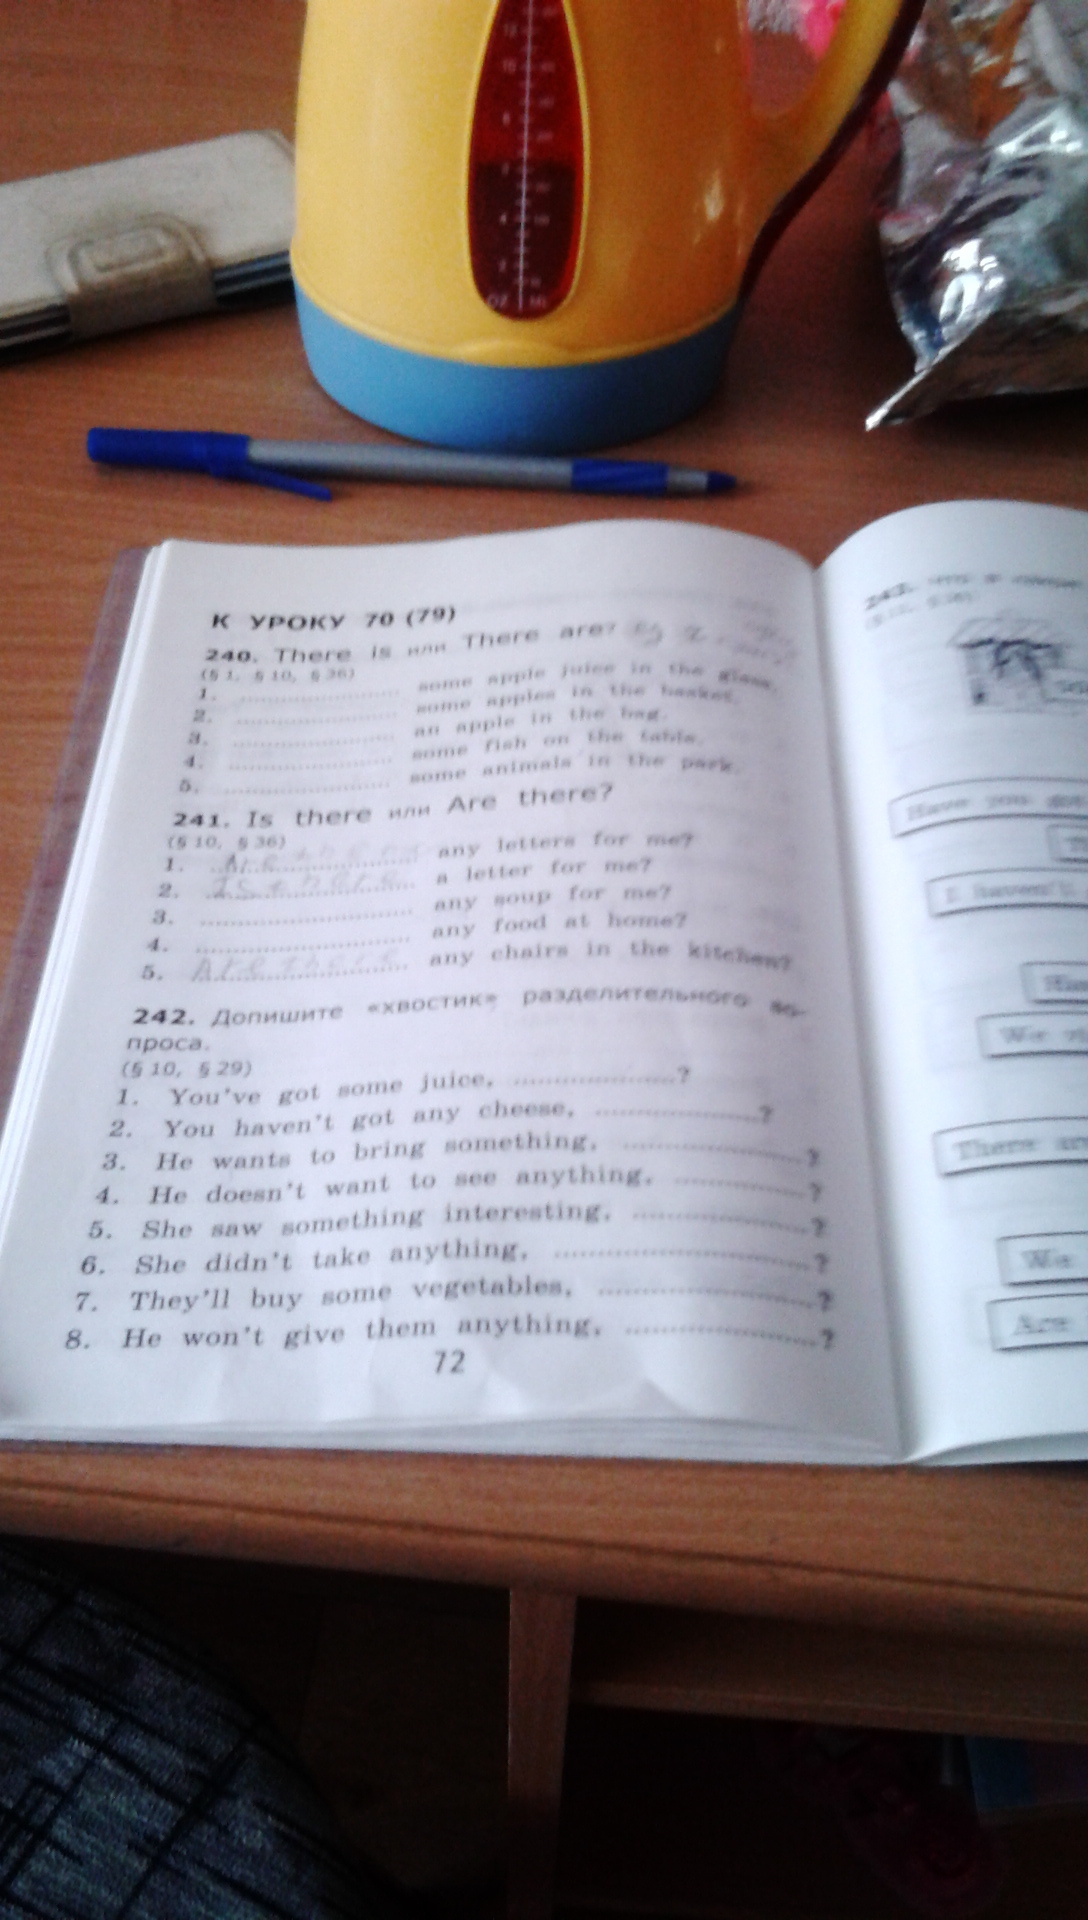 К УРОКУ 70 (79)
240. There is или There are?
(§ 1, § 10, § 36)
1. .................... some apple juice in the glass.
2. .................... some apples in the basket.
3. .................... an apple in the bag.
4. .................... some fish on the table.
5. .................... some animals in the park.
241. Is there или Are there?
(§ 10, § 36)
1. Are there any letters for me?
2. Is there a letter for me?
3. .................... any soup for me?
4. .................... any food at home?
5. Are there any chairs in the kitchen?
242. Допишите «хвостик» разделительного во-
проса.
(§ 10, § 29)
1. You've got some juice, ....................?
2. You haven't got any cheese, ....................?
3. He wants to bring something, ....................?
4. He doesn't want to see anything, ....................?
5. She saw something interesting, ....................?
6. She didn't take anything, ....................?
7. They'll buy some vegetables, ....................?
8. He won't give them anything, ....................?
72
243.
Have you got
I haven't
We
There
We
Are